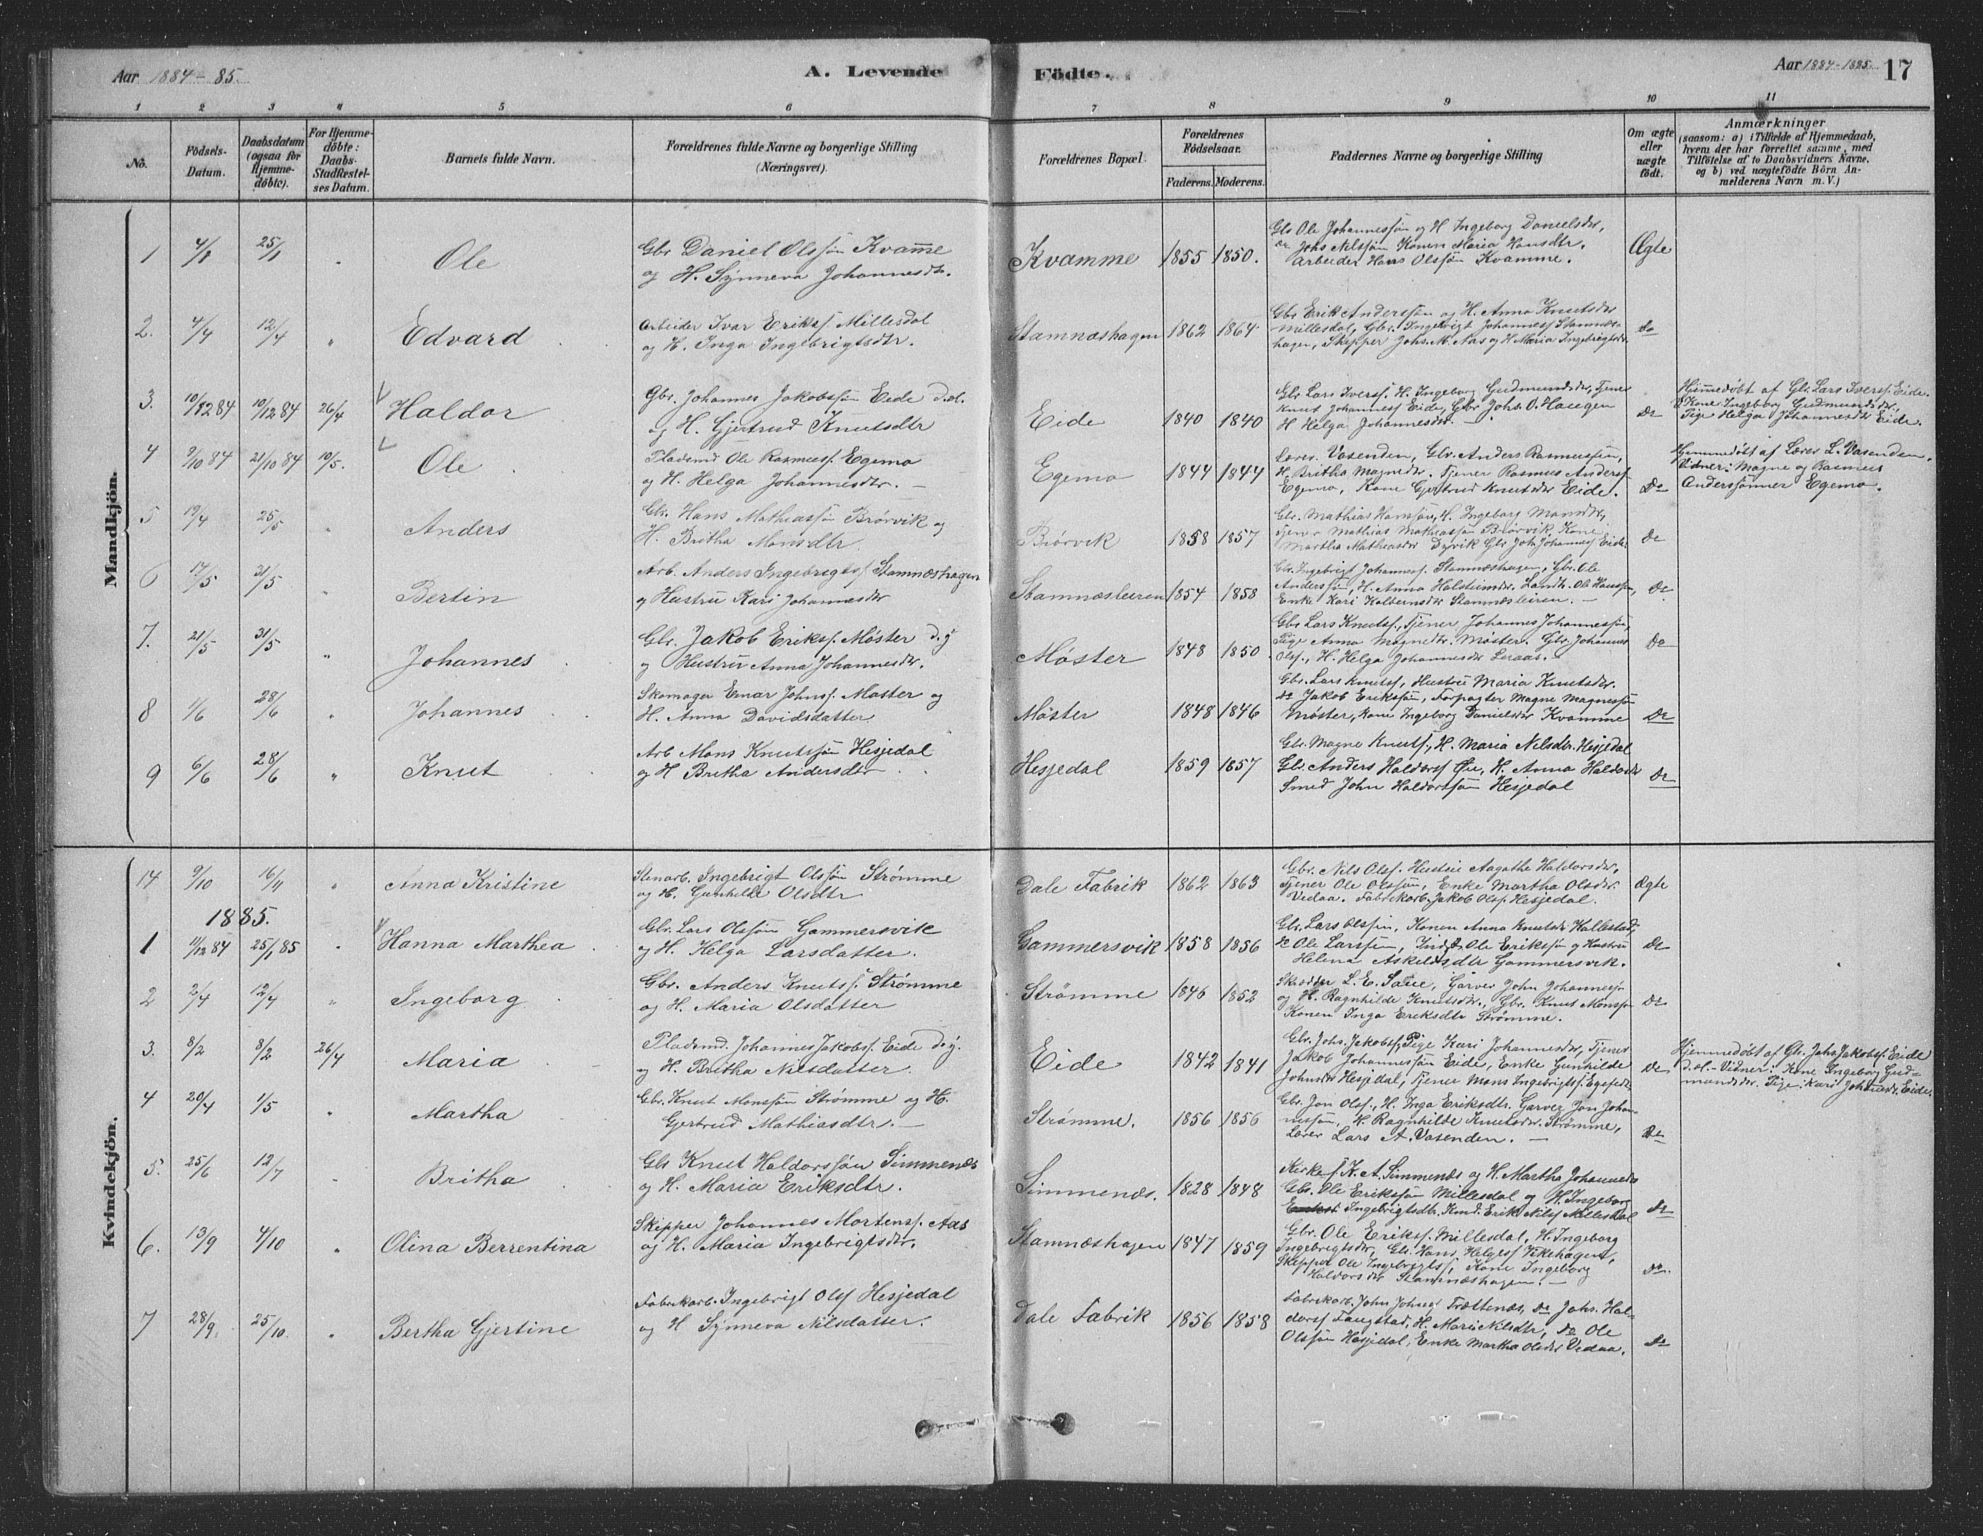 Aar 1884-85.
A. Levende Födte.
Aar 1884-1885. 17
1 2 3 4 5 6 7 8 9 10 11
No.
Födsels-Datum.
Daabsdatum (ogsaa for Hjemme-döbte).
For Hjemme-döbte: Daabs-Stadfæstel-ses Datum.
Barnets fulde Navn.
Forældrenes fulde Navne og borgerlige Stilling (Næringsvei).
Forældrenes Bopæl.
Forældrenes Födselsaar.
Faderens. Moderens.
Faddernes Navne og borgerlige Stilling
Om ægte eller uægte födt.
Anmærkninger
(saasom: a) i Tilfælde af Hjemmedaab,
hvem der har forrettet samme, med
Tilföielse af to Daabsvidners Navne.
og b) ved uægtefödte Börn An-
melderens Navn m. V.)
Mandkjön.
1 4/1 25/1 " Ole
Gbr. Daniel Olssön Kvamme
og H. Synneva Johannesdtr.
Kvamme 1855 1850.
Gbr Ole Johannessön og H. Ingeborg Danielsdtr,
do Johs Nilssön Konen Maria Hansdtr,
Arbeider Hans Olssön Kvamme.
Ægte
2. 4/4 12/4 " Edvard
Arbeider Ivar Erikss. Millesdal
og H. Inga Ingebrigtsdtr.
Stamnæshagen 1862 1864
Gbr Erik Anderssön og H. Anna Knutsdtr
Millesdal, Gbr. Ingebrigt Johanness Stamnæs-
hagen, Skipper Johs. M. Aas og H Maria Ingebrigtsdtr.
Do
3. 10/12 84 10/12 84 26/4 Haldor
Gbr. Johannes Jakobssön Eide d.æ.
og H. Gjertrud Knutsdtr
Eide 1840 1840
Gbr Lars Iverss. H. Ingeborg Gudmundsdtr, Tjener
Knut Johanness Eide, Gbr Johs. O. Haugen
H Helga Johannesdtr.
Do
Hjemmedøbt af Gbr. Lars Iverss. Eide.
Kone Ingeborg Gudmundsdtr,
Pige Helga Johannesdtr Eide.
4 9/10 84 21/10 84 10/5. Ole
Pladsmd Ole Rasmuss. Egemo
og H. Helga Johannesdtr.
Egemo 1844 1844
Lærer. Vasenden, Gbr. Anders Rasmussen,
H. Britha Magnesdtr. Tjener Rasmus Anderss
Egemo, Kone Gjertrud Knutsdtr Eide.
Do
Hjemmedøbt af Lærer L. Vasenden.
Vidner: Magne og Rasmus
Anderssønner Egemo.
5 19/4 25/5 " Anders
Gbr. Hans Mathiassön Brørvik og
H. Britha Monsdtr
Brørvik 1858 1857
Gbr. Mathias Hanssön, H. Ingeborg Monsdtr,
Tjener Mathias Mathiassön Brørvik, Kone
Martha Mathiasdtr Dyvik Gbr Joh Johanness Eide.
Do
6 17/5 31/5 " Bertin
Arb. Anders Ingebrigtss Stamnæshagen
og Hustru Kari Johannesdtr
Stamnæsleiren 1854 1858
Gbr. Ingebrigt Johanness. Stamnæshagen, Gbr. Ole
Anderssön, H. Anna Holsteinsdtr. Landh. Ole Hanssen,
Enke Kari Stamnæsleiren.
Do
7. 21/5 31/5 " Johannes
Gbr. Jakob Erikss. Møster d.y
og Hustru Anna Johannesdtr.
Møster 1848 1850
Gbr Lars Knutss., Tjener Johannes Johannessön,
Pige Anna Magnedtr. Møster. Gbr. Johannes
Olss., H. Helga Johannesdtr Leraas.
Do
8 1/6 28/6 " Johannes
Skomager Einar Johnss. Møster og
H. Anna Davidsdatter
Møster 1848 1846
Gbr. Lars Knutss., Hustru Maria Knutsdtr.
do Jakob Erikssön, Forpagter Magne Magnessön
Møster, Kone Ingeborg Danielsdtr Kvamme
Do
9 6/6 28/6 " Knut
Arb Mons Knutssön Hesjedal
og H Britha Andersdtr
Hesjedal 1859 1857
Gbr. Magne Knutss., H. Maria Nilsdtr. Hesjedal
Gbr. Anders Haldorss Øie, H. Anna Haldorsdtr
Smed John Haldorssön Hesjedal
Do
Kvindekjön.
14 9/10 16/11 " Anna Kristine
Stenarb. Ingebrigt Olssön Strømme
og H. Gunhilde Olsdtr
Dale Fabrik 1862 1863
Gbr. Nils Olss. Hustru Aagathe Haldorsdtr.
Tjener Ole Olssön, Enke Martha Olsdtr.
Vedaa. Fabrikarb. Jakob Olss. Hesjedal.
Ægte
1885.
1 11/12 84 25/1 85 " Hanna Marthea
Gbr. Lars Olssön Gammersvik
og H. Helga Larsdatter.
Gammersvik 1858 1856
Gbr. Lars Olssön, Konen Anna Knutsdtr Hallestad,
do Ole Larssön, Inds. Ole Erikssön og Hustru
Helena Askelsdtr Gammersvik.
Do
2 2/4 12/4 " Ingeborg
Gbr. Anders Knutss. Strømme
og H. Maria Olsdatter
Strømme 1846 1852
Skrædder L. E. Garver John Johannessön
og H. Ragnhilde Knutsdtr., Gbr. Knut Monssön
Konen Inga Eriksdtr Strømme.
Do
3. 8/2 8/2 26/4 Maria
Pladsmd. Johannes Jakobss. Eide d.y.
og H. Britha Nilsdatter.
Eide 1842 1841
Gbr. Johs. Jakobss., Pige Kari Johannesdtr, Tjener
Jakob Johannessön Eide, Enke Gunhilde
Johnsdtr Hesjedal, Tjener Mons Ingebrigtss.
Do
Hjemmedøbt af Gbr. Johs Jakobss. Eide
d.æ.- Vitner: Kone Ingeborg Gud-
mundsdtr. Pige: Kari Johansdr. Eide.
4 20/4 1/5 " Martha
Gbr. Knut Monssön Strømme og H.
Gjertrud Mathiasdtr.
Strømme. 1856 1856
Gbr. Jon Olss., H. Inga Eriksdtr. Garver Jon Johan-
nessön, H. Ragnhilde Knutsdtr. Strømme,
Lærer Lars A. Vasenden.
Do
5. 25/6 12/7 " Britha
Gbr Knut Haldorssön Simmenæs
og H. Maria Eriksdtr.
Simmenæs. 1828 1848
Kirkes. K. A. Simmenæs og H. Martha Johannesdtr
Gbr. Ole Erikssön Millesdal og H. Ingeborg
Ingebrigtsdtr. Erik Nilss Millesdal
Do
6. 13/9 4/10 " Olina Berrentina
Skipper Johannes Mortenss. Aas
og H. Maria Ingebrigtsdtr.
Stamnæshagen 1847 1859
Gbr. Ole Erikss. Millesdal, H. Ingeborg
Ingebrigtsdtr, Gbr. Hans Helgess Vikehagen,
Skipper Ole Ingebrigtss, Kone Ingeborg
Haldorsdtr Stamnæshagen.
Do.
7 28/9. 25/10. " Bertha Gjertine
Fabrikarb. Ingebrigt Olss Hesjedal
og H Synneva Nilsdatter.
Dale Fabrik 1856 1858
Fabrikarb. John Johns Trættenæs, do Johs. Hal-
dorss Faugstad, H. Mari Nilsdtr, do Ole
Olssön Hesjedal, Enke Martha Olsdtr Vedaa.
Do